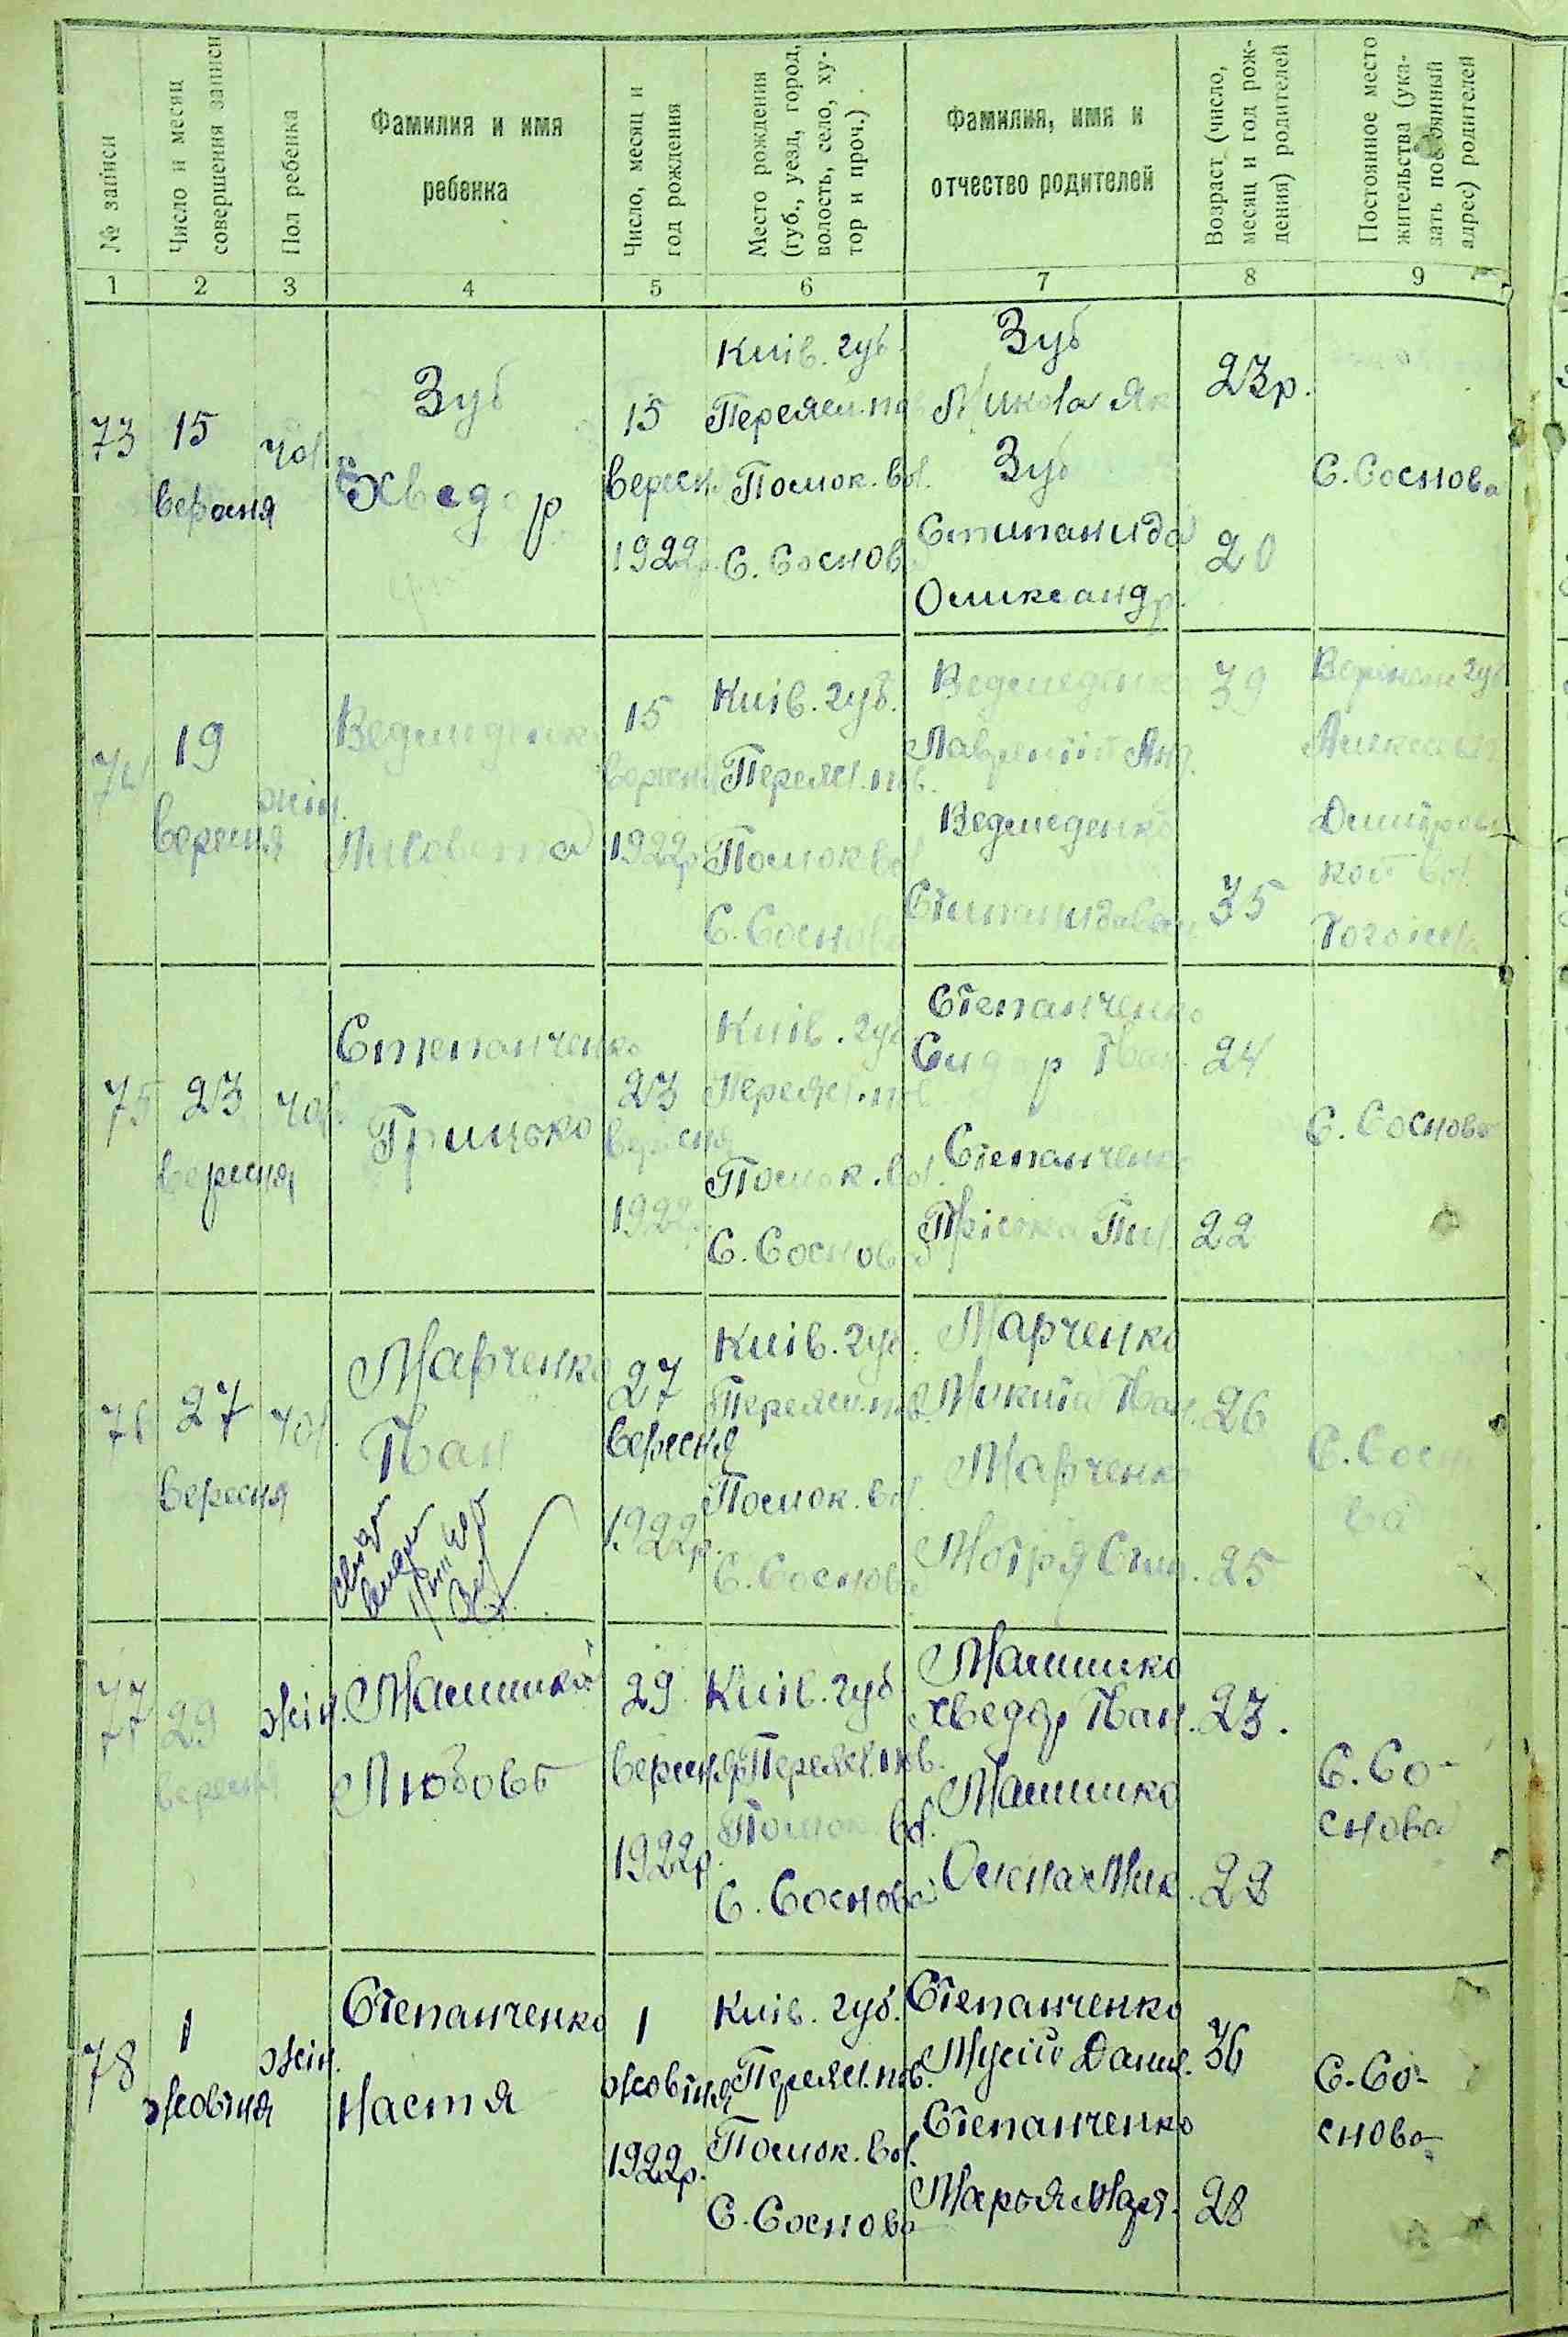 № записи
Число и месяц
совершения записи
Пол ребенка
Фамилия и имя
ребенка
Число, месяц и
год рождения
Место рождения
(губ., уезд, город,
волость, село, ху-
тор и проч.)
Фамилия, имя и
отчество родителей
Возраст (число,
месяц и год рож-
дения) родителей
Постоянное место
жительства (ука-
зать постоянный
адрес) родителей
1 2 3 4 5 6 7 8 9
73
15
вересня
чол.
Зуб
Хведор
15
вересн.
1922р.
Київ. губ.
Переясл. пов.
Помок. вол.
С. Соснова
Зуб
Микола Як
Зуб
Стипанида
Олександр.
23р.
20
С. Соснова
74
19
вересня
жін.
Ведмеденко
Лисовета
15
вересня
1922р
Київ. губ.
Переясл. пов.
Помок вол
С. Соснова
Ведмеденко
Лаврентій Ант.
Ведмеденко
Стипанида
39
35
губ
вол.
75
23
вересня
чол.
Степанченко
Грицько
23
вересня
1922р.
Київ. губ
Переясл. пов
Помок. вол.
С. Соснова
Степанченко
Сидор Іван.
Степанченко
Пріська Пил.
24
22
С. Соснова
76
27
вересня
чол.
Марченко
Іван
27
вересня
1922р.
Київ. губ.
Переясл. пов.
Помок. вол.
С. Соснова
Марченко
Микита Іван.
Марченко
Мотря
26
25
С. Сосно
ва
77
29
вересня
жін.
Машишко
Любовь
29
вересня
1922р.
Київ. губ
Переясл. пов.
Помок. вол.
С. Соснова
Машишко
Хведор Іван.
Машишко
Олена Мик.
23.
28
С. Со-
снова
78
1
жовтня
жін.
Степанченко
Настя
1
жовтня
1922р.
Київ. губ.
Переясл. пов.
Помок. вол.
С. Соснова
Степанченко
Мусій Данил.
Степанченко
Марья Март.
36
28
С. Со-
снова